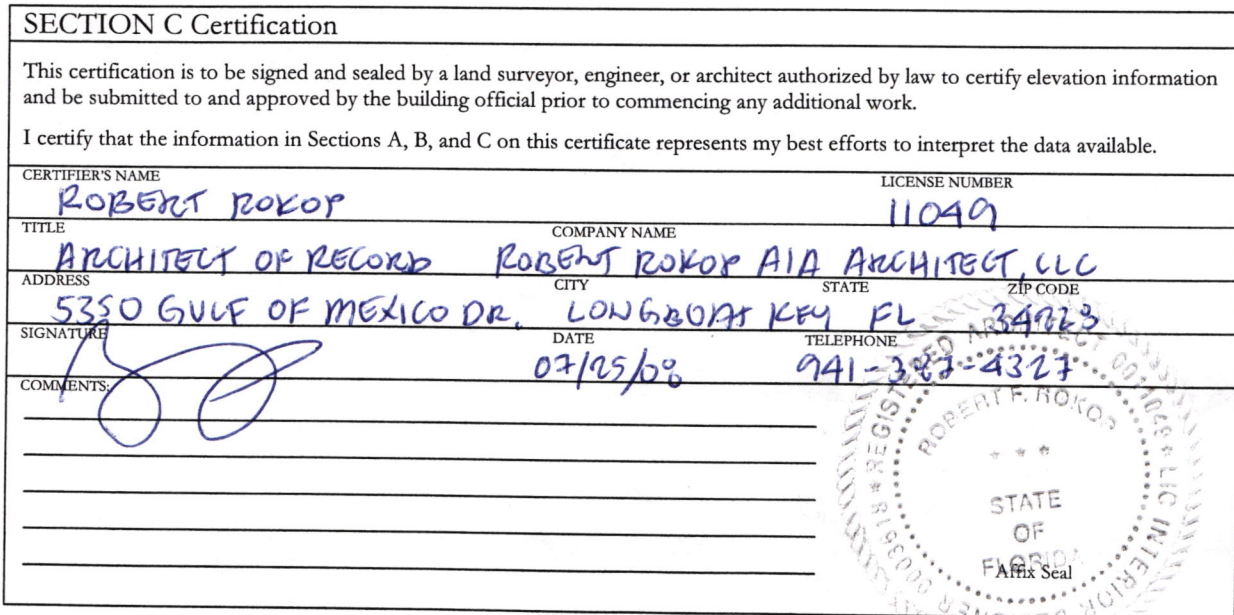 SECTION C Certification
This certification is to be signed and sealed by a land surveyor, engineer, or architect authorized by law to certify elevation information
and be submitted to and approved by the building official prior to commencing any additional work.
I certify that the information in Sections A, B, and C on this certificate represents my best efforts to interpret the data available.
CERTIFIER'S NAME LICENSE NUMBER
ROBERT ROKOP 11049
TITLE COMPANY NAME
ARCHITECT OF RECORD ROBERT ROKOP AIA ARCHITECT, LLC
ADDRESS CITY STATE ZIP CODE
5350 GULF OF MEXICO DR. LONGBOAT KEY FL 34228
SIGNATURE DATE TELEPHONE
07/25/08 941-387-4327
COMMENTS:
REGISTERED ARCHITECT 0011049 * LIC INTERIOR DESIGNER 0003518 *
ROBERT F. ROKOP
* * *
STATE
OF
FLORIDA
Affix Seal